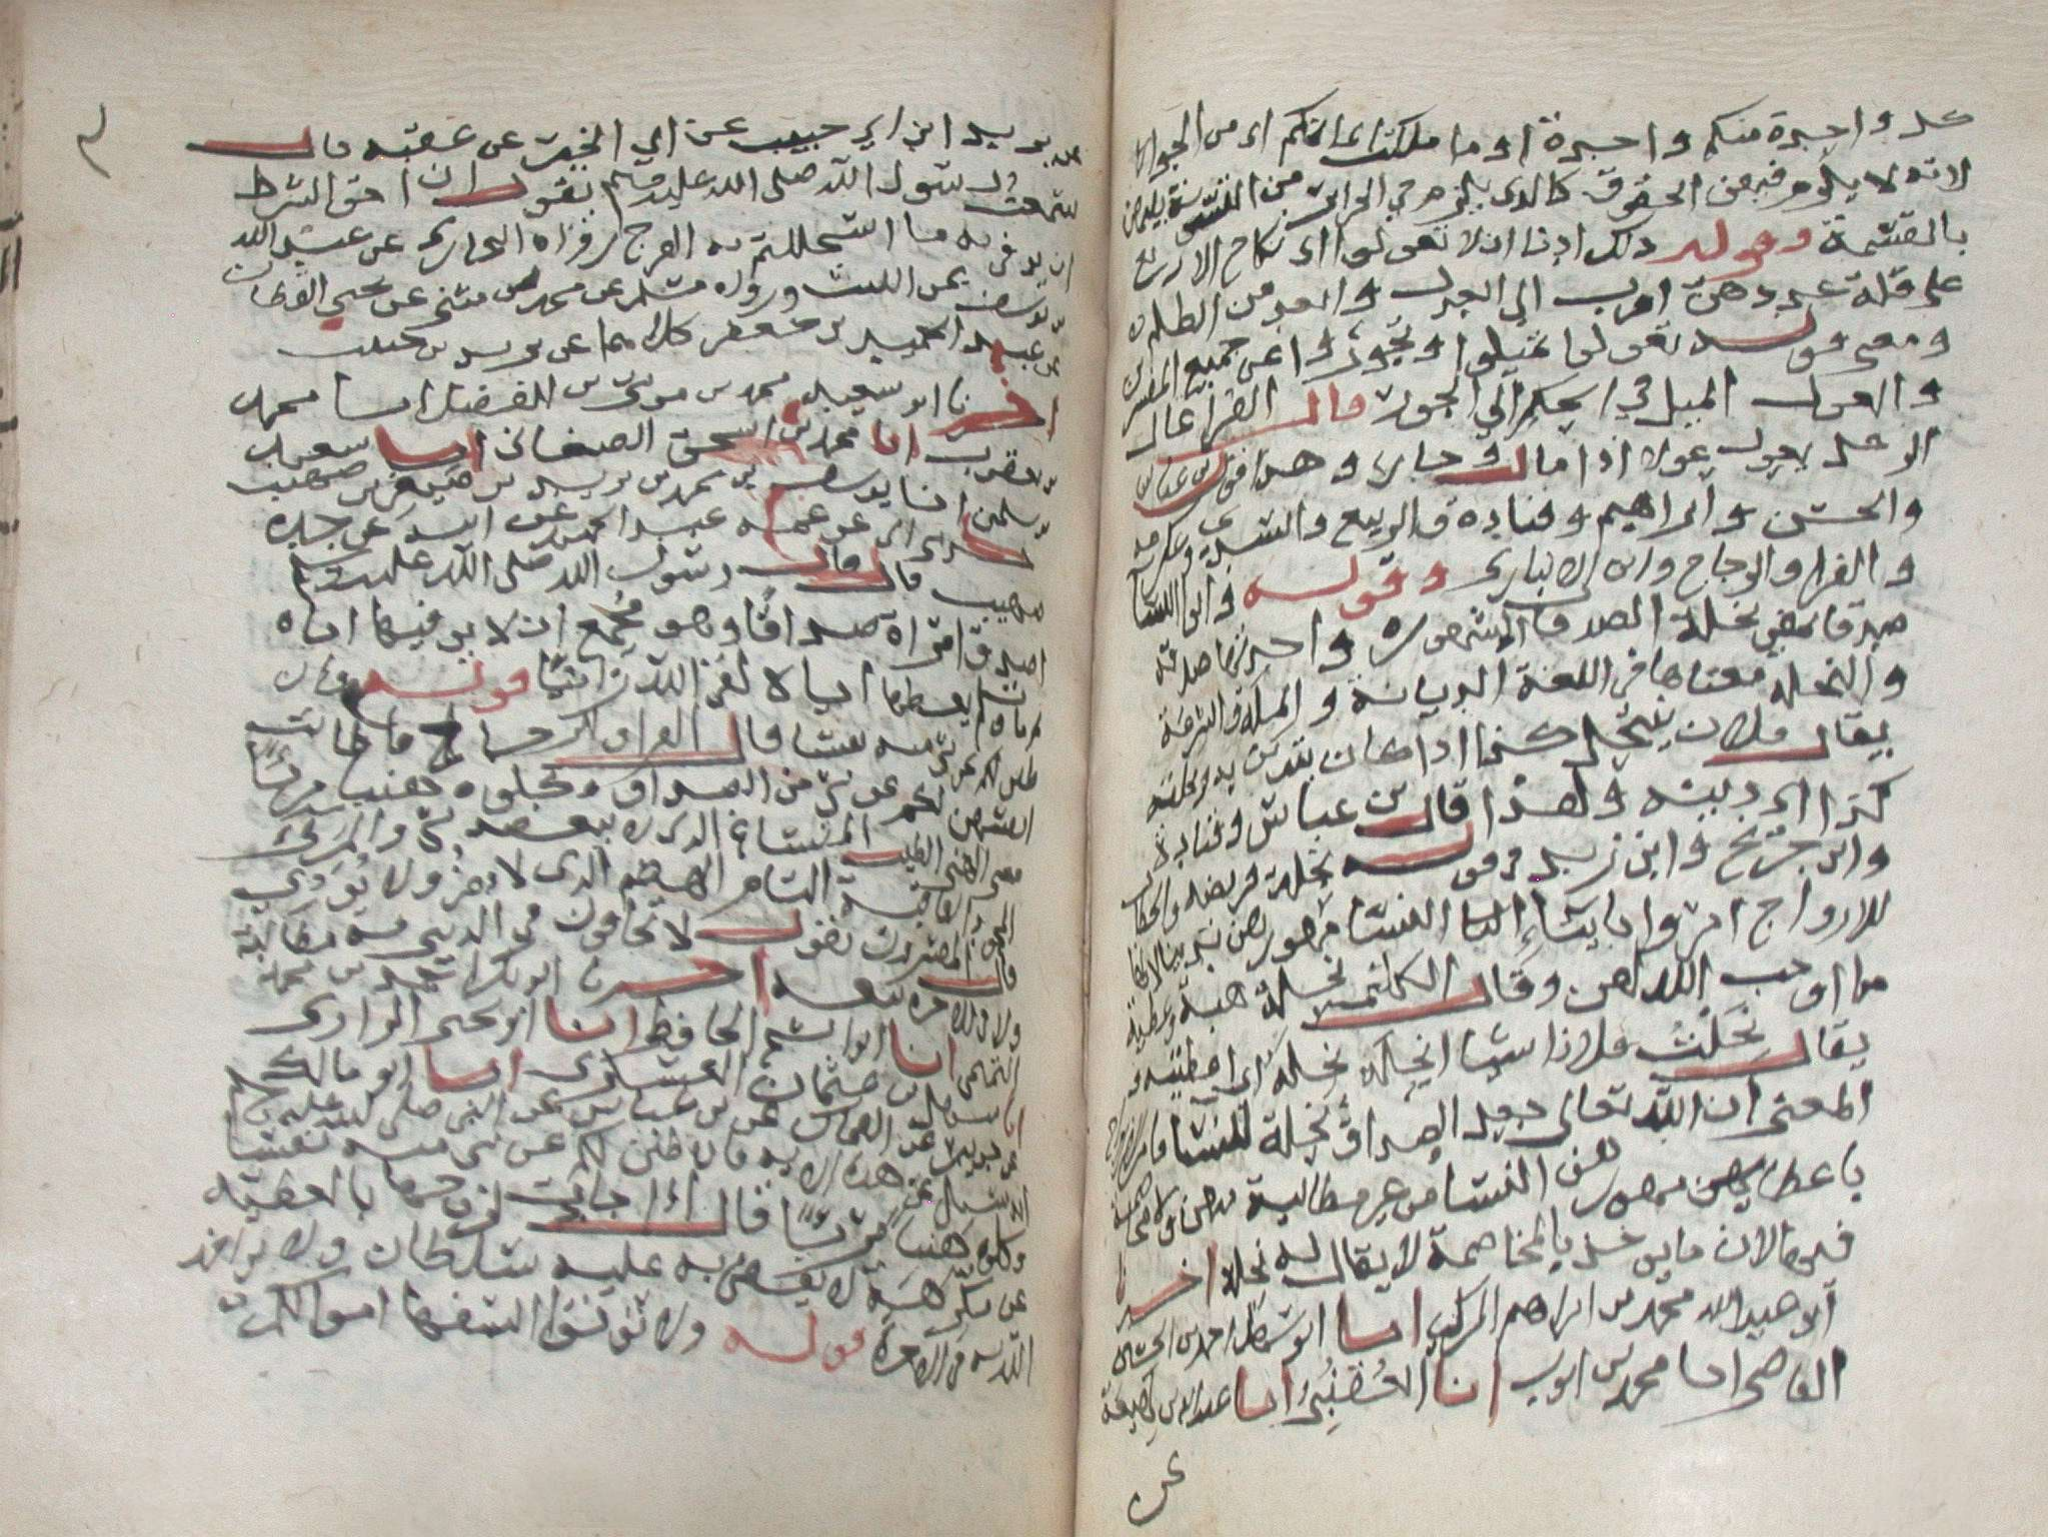 كل واحدة منكم واحدة او ما ملكت ايمانكم اى من الجوار
لانه لا يلزم فيهن الحقوق كالذى يلزم في الحرائر من
بالقسمة وقوله ذلك ادنا ان لا تعولوا اى نكاح الاربع
على قلة عددهن اقرب الى العدل وابعد من الظلم
ومعنى قوله تعولوا تميلوا وتجوروا عن جميع المفسرين
والعول الميل في الحكم الي الجور قال الفرا عال
الرجل يعول عولا اذا مال وجار وهذا قول بن عباس
والحسن وابراهيم وقتادة والربيع والسدى وعكرمه
والفرا والزجاج وابن الانبارى وقوله واتوا النسا
صدقاتهن نحلة الصدقات المهور واحدتها صدقه
والنحله معناها في اللغة الديانة والملة والشرعة
يقال فلان ينتحل كذا اذا كان يتدين به ونحلته
كذا اى دينه ولهذا قال بن عباس وقتادة
وابن جريج وابن زيد في قوله نحلة فريضه والخطاب
للازواج امروا بايتاء النسا مهورهن
ما اوجب الله لهن وقال الكلبى نحلة هبة وعطية
يقال نحلت فلانا شيا انحله نحلة اى اعطيته و
المعنى ان الله تعالى جعل الصداق نحلة للنسا
باعطايهن مهورهن النسا من غير مطالبة منهن
فيها لان ما يوخذ بالمخاصمة لا يقال له نحلة اخبرنا
ابو عبد الله محمد بن ابراهيم المزكى انبا ابو سهل احمد بن الحسين
القاضى انبا محمد بن ايوب انا القعنبى انبا عبد الله بن لهيعة
عن
عن يزيد ابن ابي حبيب عن ابي الخير عن عقبه قال
سمعت رسول الله صلى الله عليه وسلم يقول ان احق الشرط
ان يوفى به ما استحللتم به الفرج رواه البخارى عن عبد الله
بن يوسف عن الليث ورواه مسلم عن محمد بن مثنى عن يحيى القطان
عن عبد الحميد بن جعفر كلاهما عن يزيد بن حبيب
اخبرنا ابو سعيد محمد بن موسى بن الفضل انبا محمد
بن يعقوب انا محمد بن اسحق الصغانى انبا سعيد
بن سليمن انا يوسف بن محمد بن يزيد بن صيفى بن صهيب
عن عمه عبد الحميد عن ابيه عن جده
صهيب قال قال رسول الله صلى الله عليه وسلم
اصدق امراة صداقا وهو مجمع ان لا يوفيها اياه
ثم مات ولم يعطها اياه لقى الله زانيا قوله فان
طبن لكم عن شى منه نفسا قال الفرا والزجاج فان طابت
انفسهن لكم عن شى من الصداق فكلوه هنيا مريا
معنى الهنى الطيب المساغ الذى لا ينغصه شى والمرى
المحمود العاقبة التام الهضم الذى لا يضر ولا يوذى
قال المفسرون يقول لا تخافون في الدنيا منه مطالبة
ولا في الاخرة تبعه اخبرنا ابو بكر احمد بن محمد
التميمى انا ابو الشيخ الحافظ انا ابو يحيى الرازى
سهل بن عثمان العسكرى انبا ابو مالك
عن جويبر عن الضحاك عن بن عباس عن النبى صلى الله عليه
انه سيل عن هذه الاية فان طبن لكم عن شى منه نفسا
فكلوه هنيا مريا قال اذا جادت لزوجها بالعطيه
عن غير كراهية لا يقضى به عليه سلطان ولا يواخذه
الله به في الاخرة قوله ولا توتوا السفها اموالكم